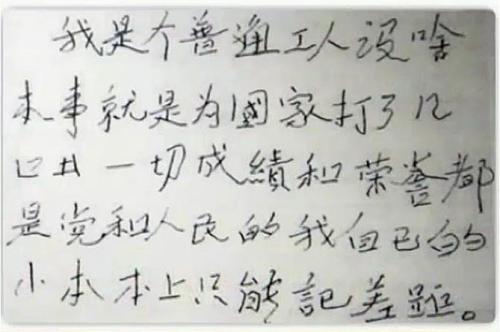 我是个普通工人没啥
本事就是为國家打了几
口井一切成績和荣誉都
是党和人民的我自己的
小本本上只能記差距。